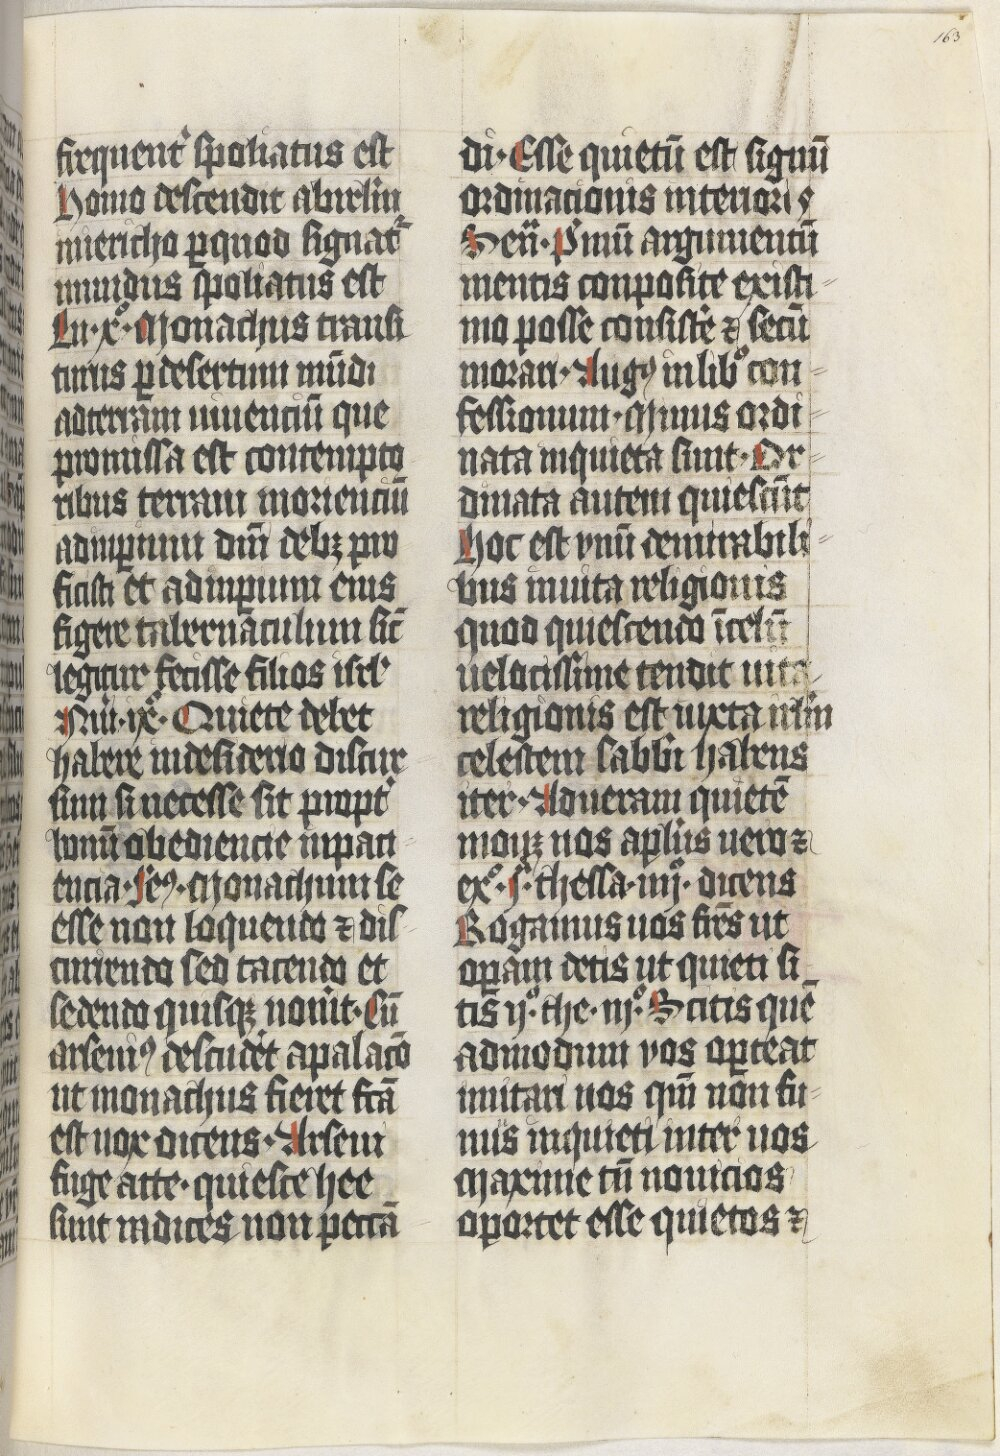 163
frequent᷑ spoliatus est
Homo descendit abirľm
iniericho ꝑquod signat᷑
mundus spoliatus est
Lu·xͦ· Monachus transi
turus ꝑdesertum mūdi
adterram viuenciū que
promissa est contempto
ribus terram moriencíū
adinꝑium dn̄i debꝫ pro
ficisci et adinꝑium eius
figere tabernāculum sic̄
legitur fecisse filios isrľ
Nūi·ixͦ· Quiete debet
habere indesiderio discur
sum si necesse sit propt᷑
bonū obediencie inpaci
encia·Jeꝰ·Monachum se
esse non loquendo ⁊ dis
curiendo sed tacendo et
sedendo quisqꝫ nouit·Cū
arseniꝰ descudēt apalacō
ut monachus fieret fcā
est uox dicens·Arseni
fuge atte·quiesce hee
sunt radices non peccā
di·Esse quietū est signū
ordinacionis interioris
Sen̄·P͛mū argumentū
mentis conposite existi
mo posse consist͛e ⁊ secū
morari·Augꝰ inlibͦ con
fessionum·Minus ordi
nata inquieta sunt·Or
dinata autem quiescūt
Hoc est vnū demirabili
bus inuita religionis
quod quiescendo īcelū
uelocissime tendit uita
religionis est iuxta
celestem sabbi habens
iter·Adueram quietē
mouꝫ nos aplūs uero ⁊
exͦ·j·thessa·iiijͦ·dicens
Rogamus uos frēs ut
oꝑam detis ut quieti si
tis ijͦ·the·iijͦ·Scitis quē
admodum vos oꝑteat
imitari nos qm̄ nōn fu
imus inquieti inter uos
Maxime tn̄ nouicios
oportet esse quietos ⁊